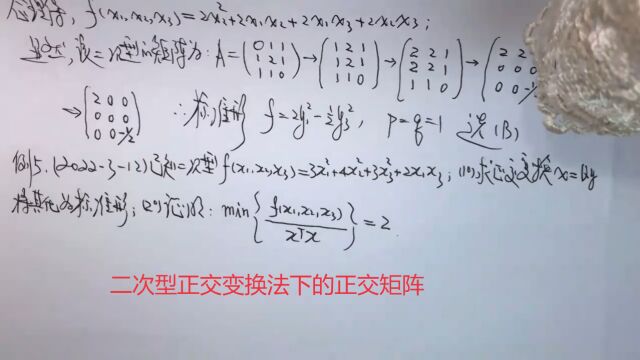 f(x₁,x₂,x₃)=2x₂²+2x₁x₂+2x₁x₃+2x₂x₃;
二次型的矩阵为: A=(0 1 1; 1 2 1; 1 1 0)→(1 2 1; 1 2 1; 1 1 0)→(2 2 1; 2 2 1; 1 1 0)→(2 2 0; 0 0 0; 0 0 -1/2)
→(2 0 0; 0 0 0; 0 0 -1/2) ∴标准形 f=2y₁²-½y₃², p=q=1 选(B)
例5.(2022-3-12)已知二次型f(x₁,x₂,x₃)=3x₁²+4x₂²+3x₃²+2x₁x₃; (1)求正交变换x=Qy
将其化为标准形; (2)证明: min{f(x₁,x₂,x₃)/xᵀx}=2.
二次型正交变换法下的正交矩阵